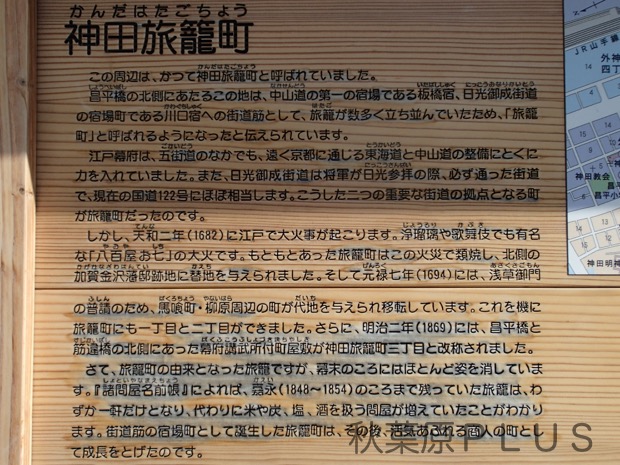 かんだはたごちょう
神田旅籠町
この周辺は、かつて神田旅籠町と呼ばれていました。
昌平橋の北側にあたるこの地は、中山道の第一の宿場である板橋宿、日光御成街道
の宿場町である川口宿への街道筋として、旅籠が数多く立ち並んでいたため、「旅籠
町」と呼ばれるようになったと伝えられています。
江戸幕府は、五街道のなかでも、遠く京都に通じる東海道と中山道の整備にとくに
力を入れていました。また、日光御成街道は将軍が日光参拝の際、必ず通った街道
で、現在の国道122号にほぼ相当します。こうした二つの重要な街道の拠点となる町
が旅籠町だったのです。
しかし、天和二年(1682)に江戸で大火事が起こります。浄瑠璃や歌舞伎でも有名
な「八百屋お七」の大火です。もともとあった旅籠町はこの火災で類焼し、北側の
加賀金沢藩邸跡地に替地を与えられました。そして元禄七年(1694)には、浅草御門
の普請のため、馬喰町・柳原周辺の町が代地を与えられ移転しています。これを機に
旅籠町にも一丁目と二丁目ができました。さらに、明治二年(1869)には、昌平橋と
筋違橋の北側にあった幕府講武所付町屋敷が神田旅籠町三丁目と改称されました。
さて、旅籠町の由来となった旅籠ですが、幕末のころにはほとんど姿を消していま
す。『諸問屋名前帳』によれば、嘉永(1848〜1854)のころまで残っていた旅籠は、わ
ずか一軒だけとなり、代わりに米や炭、塩、酒を扱う問屋が増えていたことがわかり
ます。街道筋の宿場町として誕生した旅籠町は、その後、活気あふれる商人の町とし
て成長をとげたのです。
JR山手線
外神
四丁
神田教会
昌平
昌平小
神田明神
秋葉原PLUS